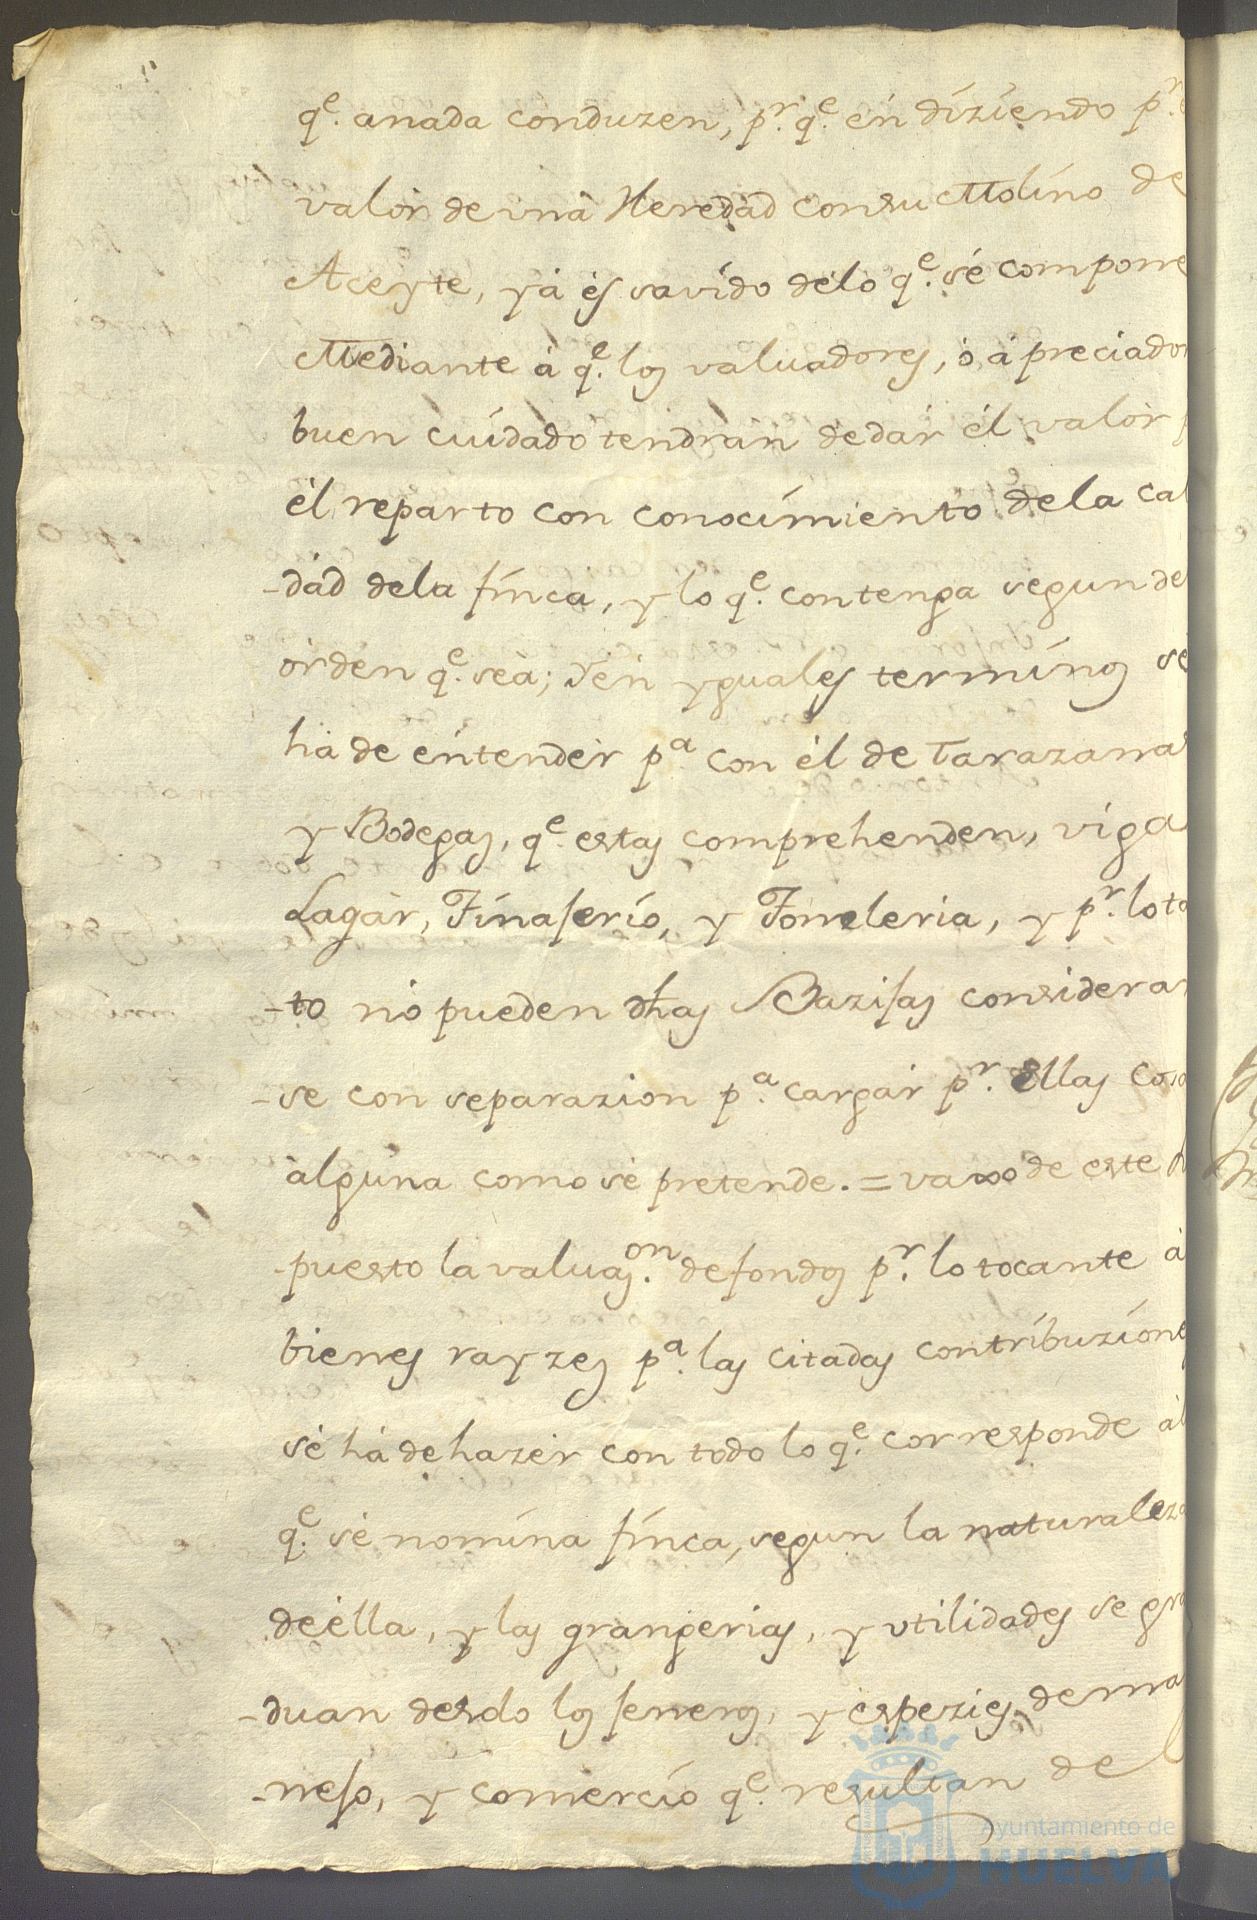 q.^e anada conduzen, p.^r q.^e én diziendo p.^r
valor de vna Heredad consu Molino de
Aceyte, yá és savido délo q.^e sé compone
Mediante á q.^e los valuadores, ó á preciador
buen cuidado tendrán dedár él valor
él reparto con conocimiento dela cal
-dád dela finca, y lo q.^e contenga segun de
órden q.^e séa; Yén yguales terminos sé
há de énténder p.^a con él de Tarazanas
y Bodegas, q.^e estas comprehenden, vigas
Lagár, y Toneleria, y p.^r lo to
-to nó pueden dhas considerar
-se con separazion p.^a cargár p.^r Ellas cosa
álguna como sé pretende. = vaxo de este
-puesto la valuas.^on defondos p.^r lo tocante á
bienes rayzes p.^a las citadas contribuziones
sé há de hazér con todo lo q.^e corresponde ál
q.^e sé nomina finca, segun la naturaleza
deélla, y las grangerias, y vtilidades se gra
-duan desdo los y espezies, de ma
-nefo, y comercio q.^e resultan de
Ayuntamiento de
HUELVA